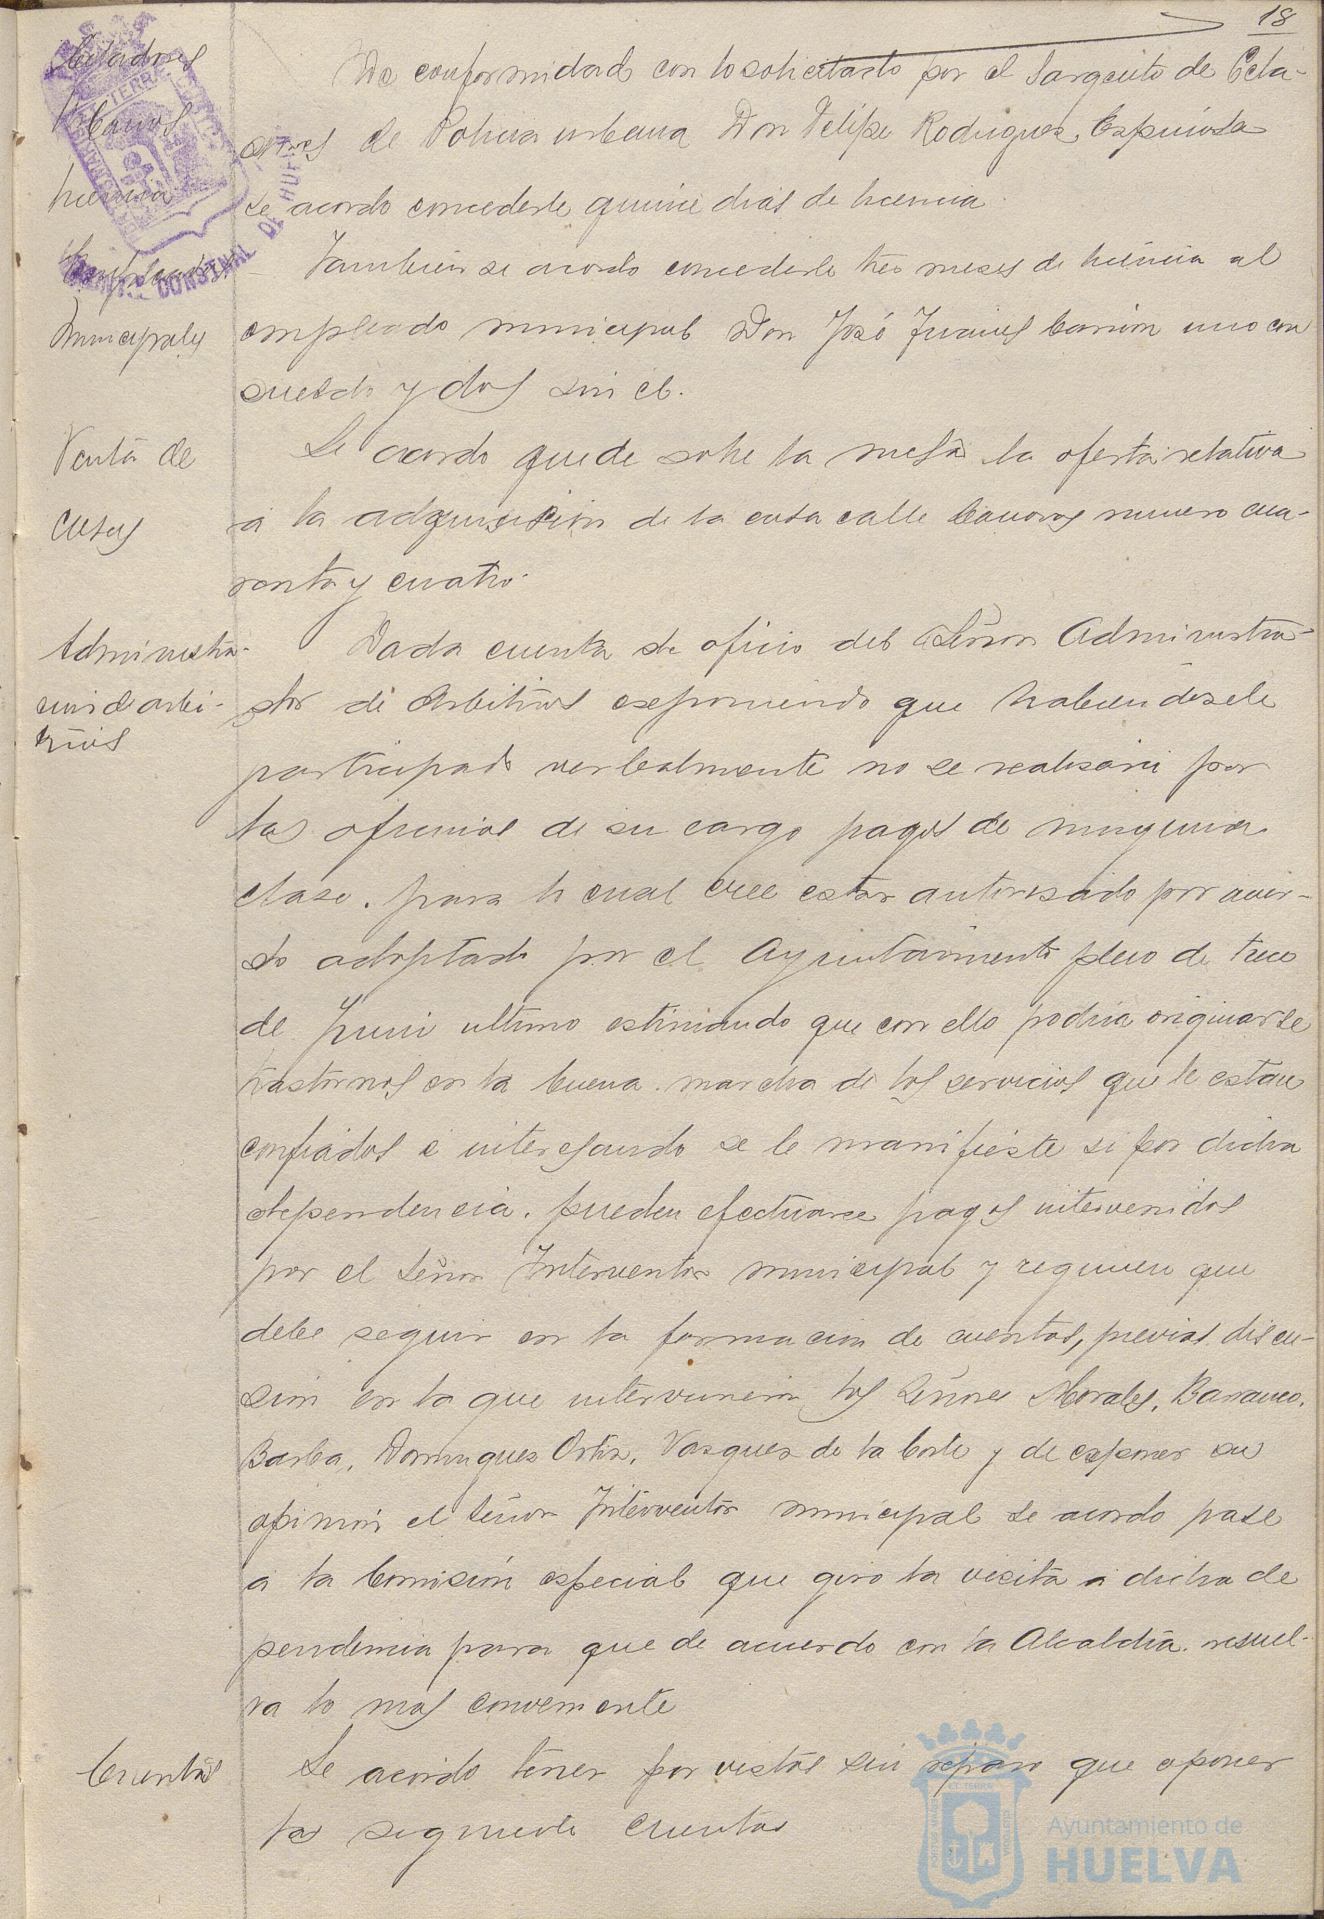 18
Celadores
Urbanos
licencia
Empleados
Municipales
De conformidad con lo solicitado por el Sargento de Cela-
dores de Policia urbana Don Felipe Rodriguez Espinosa
se acordo concederle quince dias de licencia
Tambien se acordo concederle tres meses de licencia al
empleado municipal Don José Juanes Carrion uno con
sueldo y dos sin el.
Venta de
casas
Se acordo quede sobre la mesa la oferta relativa
a la adquisicion de la casa calle Canovas numero cua-
renta y cuatro.
Administra-
cion de arbi-
trios
Dada cuenta de oficio del Señor Administra-
dor de Arbitrios exponiendo que habiendosele
participado verbalmente no se realisaria por
las oficinas de su cargo pagos de ninguna
clase. para lo cual cree estar autorisado por acuer-
do adoptado por el Ayuntamiento pleno de trece
de Junio ultimo estimando que con ello podria originarse
trastornos en la buena marcha de los servicios que le estan
confiados e interesando se le manifieste si por dicha
dependencia. pueden efectuarse pagos intervenidos
por el Señor Interventor municipal y regimen que
debe seguir en la formacion de cuentas, previas discu-
sion en la que intervinieron los Señores Morales, Barranco,
Barba, Dominguez Ortiz, Vazquez de la Corte y de exponer su
opinion el Señor Interventor municipal se acordo pase
a la Comisión especial que giro la visita a dicha de
pendencia para que de acuerdo con la Alcaldia. resuel-
va lo mas conveniente
Cuentas
Se acordo tener por vistas sin reparo que oponer
las siguiente cuentas
Ayuntamiento de
HUELVA